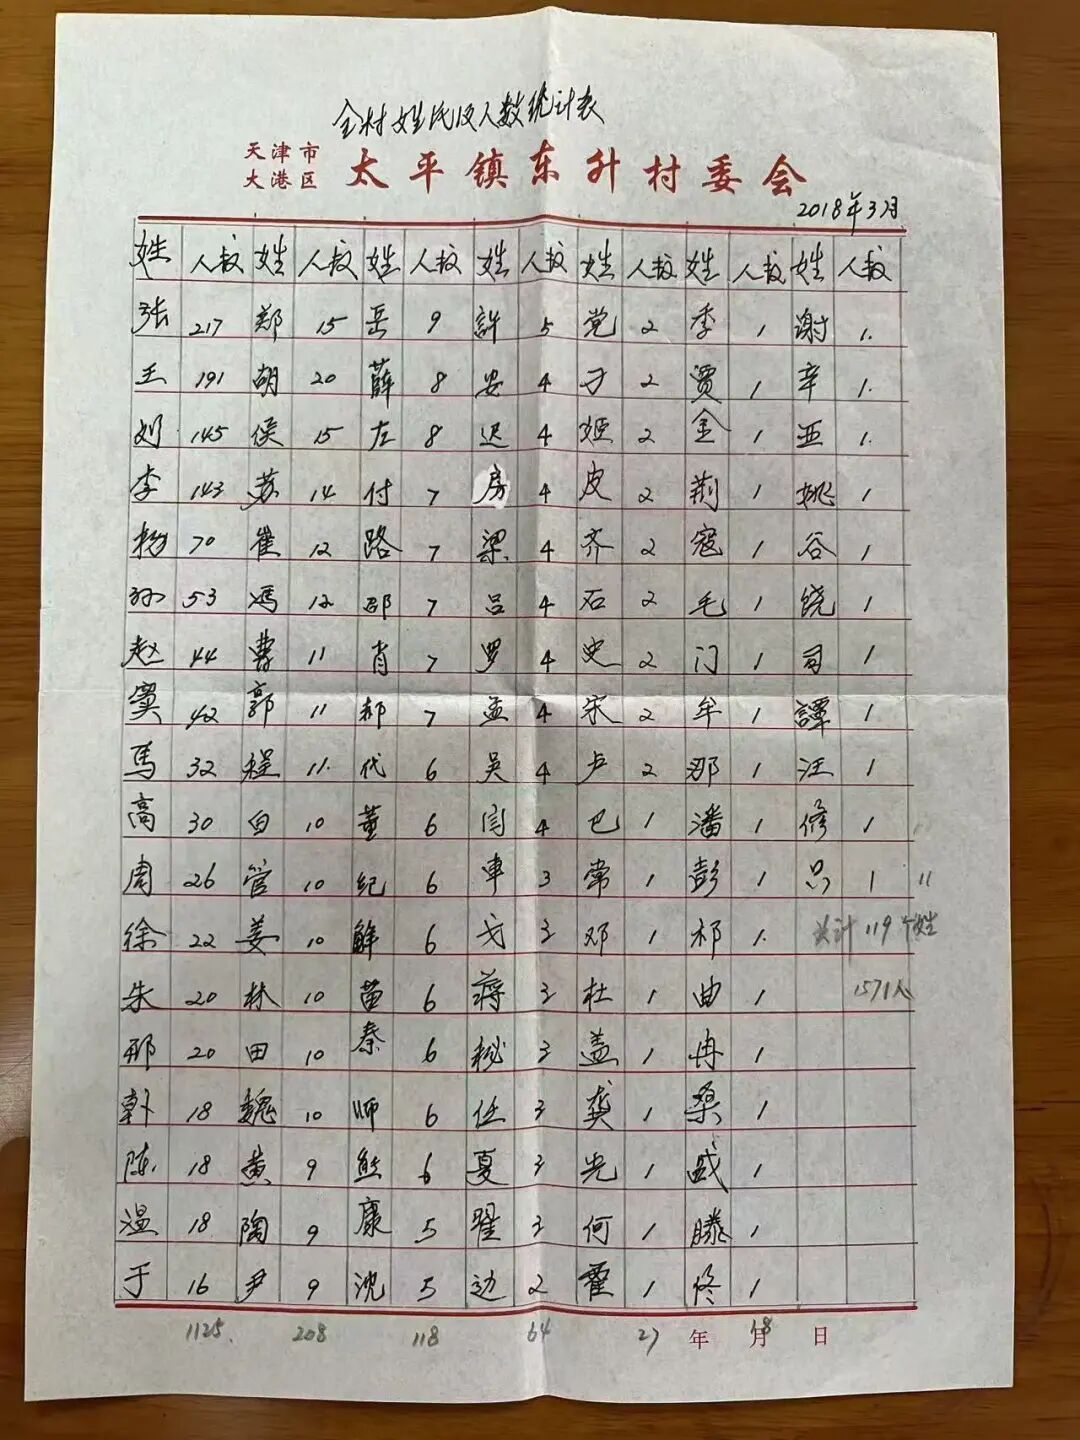 全村姓氏及人数统计表
天津市
大港区 太平镇东升村委会
2018年3月
姓 人数 姓 人数 姓 人数 姓 人数 姓 人数 姓 人数 姓 人数
张 217 郑 15 岳 9 許 5 党 2 季 1 谢 1.
王 191 胡 20 薛 8 安 4 刁 2 贾 1 辛 1.
刘 145 侯 15 左 8 迟 4 姬 2 金 1 亚 1.
李 143 苏 14 付 7 房 4 皮 2 荆 1 姚 1
杨 70 崔 12 路 7 梁 4 齐 2 寇 1 谷 1
孙 53 冯 12 邵 7 吕 4 石 2 毛 1 饶 1
赵 44 曹 11 肖 7 罗 4 史 2 门 1 司 1
窦 42 郭 11 郝 7 孟 4 宋 2 牟 1 譚 1
馬 32 程 11. 代 6 吴 4 卢 2 那 1 汪 1
高 30 白 10 董 6 闫 4 巴 1 潘 1 修 1
周 26 管 10 纪 6 車 3 常 1 彭 1 只 1 11
徐 22 姜 10 解 6 戈 3 邓 1 祁 1. 共计 119个姓
朱 20 林 10 苗 6 蒋 3 杜 1 曲 1 1571人
邢 20 田 10 秦 6 秘 3 盖 1 冉 1
韩 18 魏 10 师 6 任 3 龚 1 桑 1
陈 18 黄 9 熊 6 夏 3 光 1 戚 1
温 18 陶 9 康 5 翟 3 何 1 滕 1
于 16 尹 9 沈 5 边 2 霍 1 佟 1
1125. 208 118 64 27 年 18 月 日